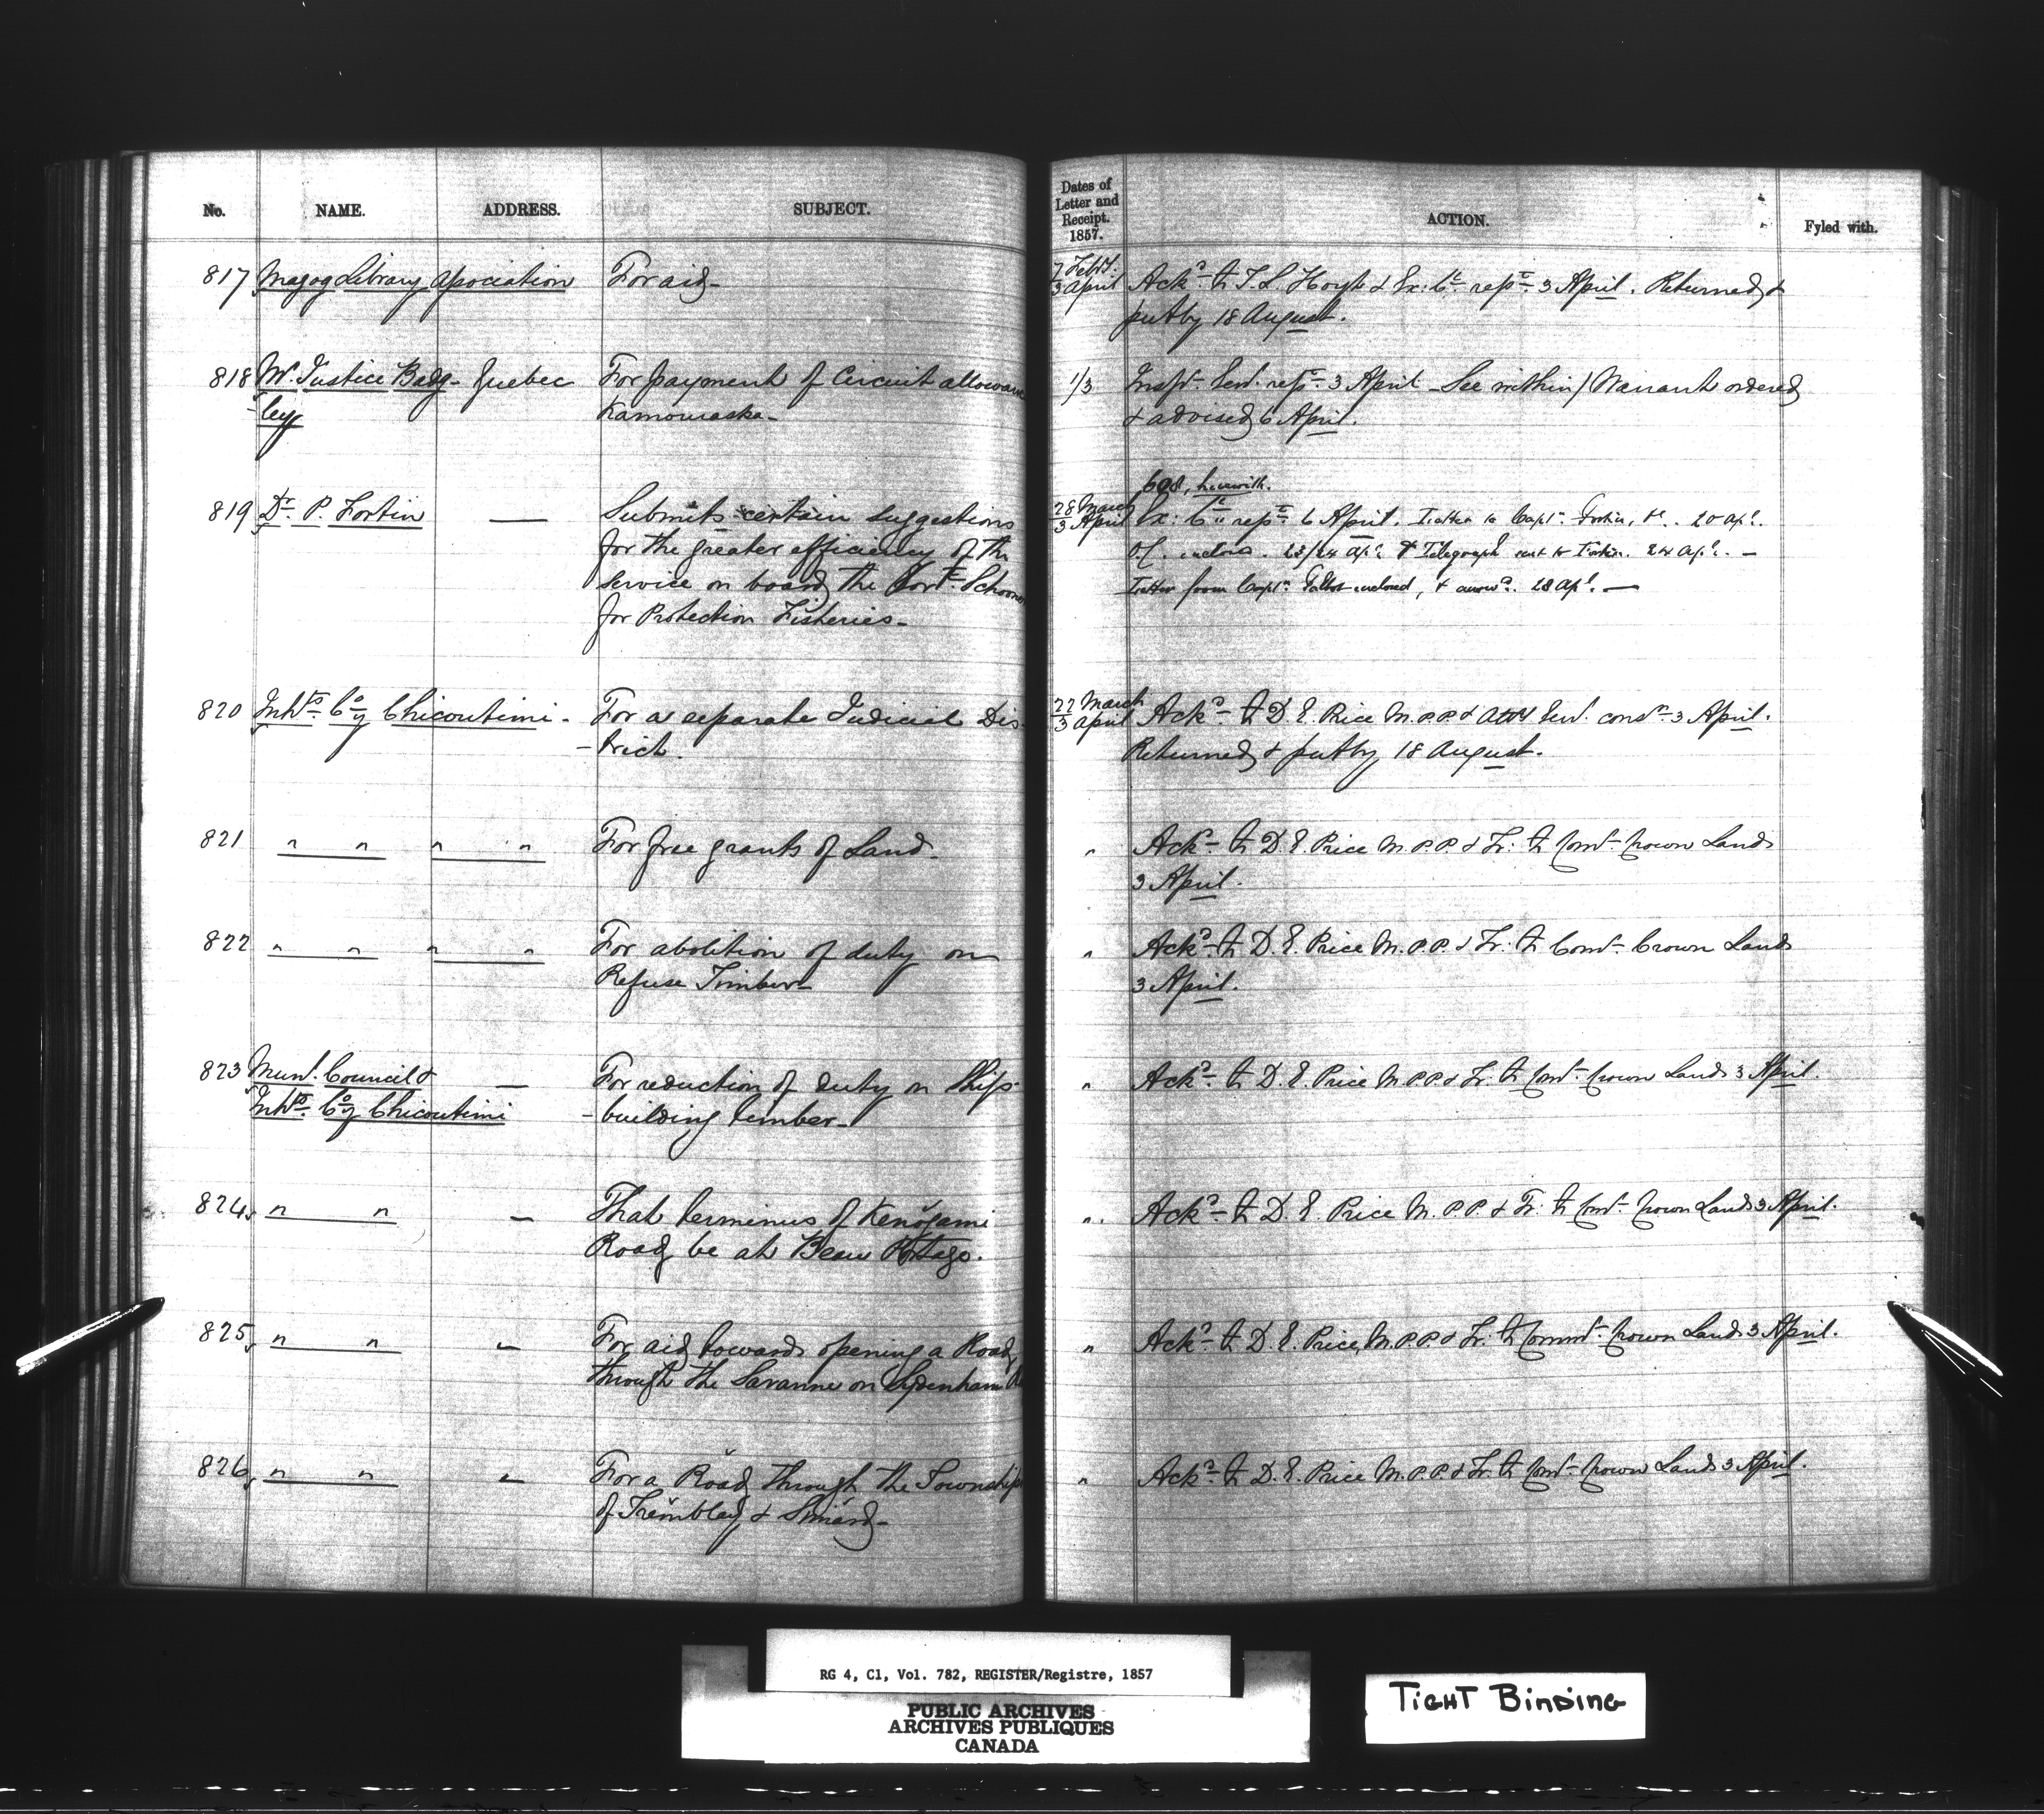 No. NAME. ADDRESS. SUBJECT.
Dates of
Letter and
Receipt.
1857.
ACTION.
Fyled with.
817 Magog Library Association For aid-
7 Feby.
3 April
Ackd. to T. L. Hoyt & Ex: Cl. repd. 3 April. Returned &
put by 18 August.
818 Mr. Justice Badg- Quebec For payment of Circuit allowance
-ley Kamouraska-
1/3 Inspr. Genl. repd. 3 April - See within / Warrant ordered
& advised 6 April.
819 Dr. P. Fortin — Submits certain suggestions
for the greater efficiency of the
Service on board the Govt. Schooner
for Protection Fisheries-
608, herewith.
28 March
3 April
Ex: Cl. repd. 6 April. Letter to Capt. Fortin, 20 Apl.
23/24 Apl. & Telegraph sent to Fortin. 24 Apl. —
Letter from Capt. Talbot enclosed, & answd. 28 Apl. —
820 Inhts. Coy Chicoutimi - For a separate Judicial Dis-
-trict.
22 March
3 April
Ackd. to D. E. Price M.P.P. & Atty Genl. consd. 3 April.
Returned & put by 18 August.
821 " " " " For free grants of Land.
" Ackd. to D. E. Price M.P.P. & Tr: to Comr. Crown Lands
3 April.
822 " " " " For abolition of duty on
Refuse Timber-
" Ackd. to D. E. Price M.P.P. & Tr: to Comr. Crown Lands
3 April.
823 Munl. Council & — For reduction of duty on Ship-
Inhts. Coy Chicoutimi -building timber-
" Ackd. to D. E. Price M.P.P. & Tr: to Comr. Crown Lands 3 April.
824 " " — That terminus of Kenogami
Road be at Beau Portage.
" Ackd. to D. E. Price M.P.P. & Tr: to Comr. Crown Lands 3 April.
825 " " — For aid towards opening a Road
through the Savanne on Sydenham
" Ackd. to D. E. Price, M.P.P. & Tr: to Commr. Crown Lands 3 April.
826 " " — For a Road through the Townships
of Tremblay & Simard-
" Ackd. to D. E. Price M.P.P. & Tr: to Comr. Crown Lands 3 April.
RG 4, C1, Vol. 782, REGISTER/Registre, 1857
PUBLIC ARCHIVES
ARCHIVES PUBLIQUES
CANADA
TIGHT BINDING